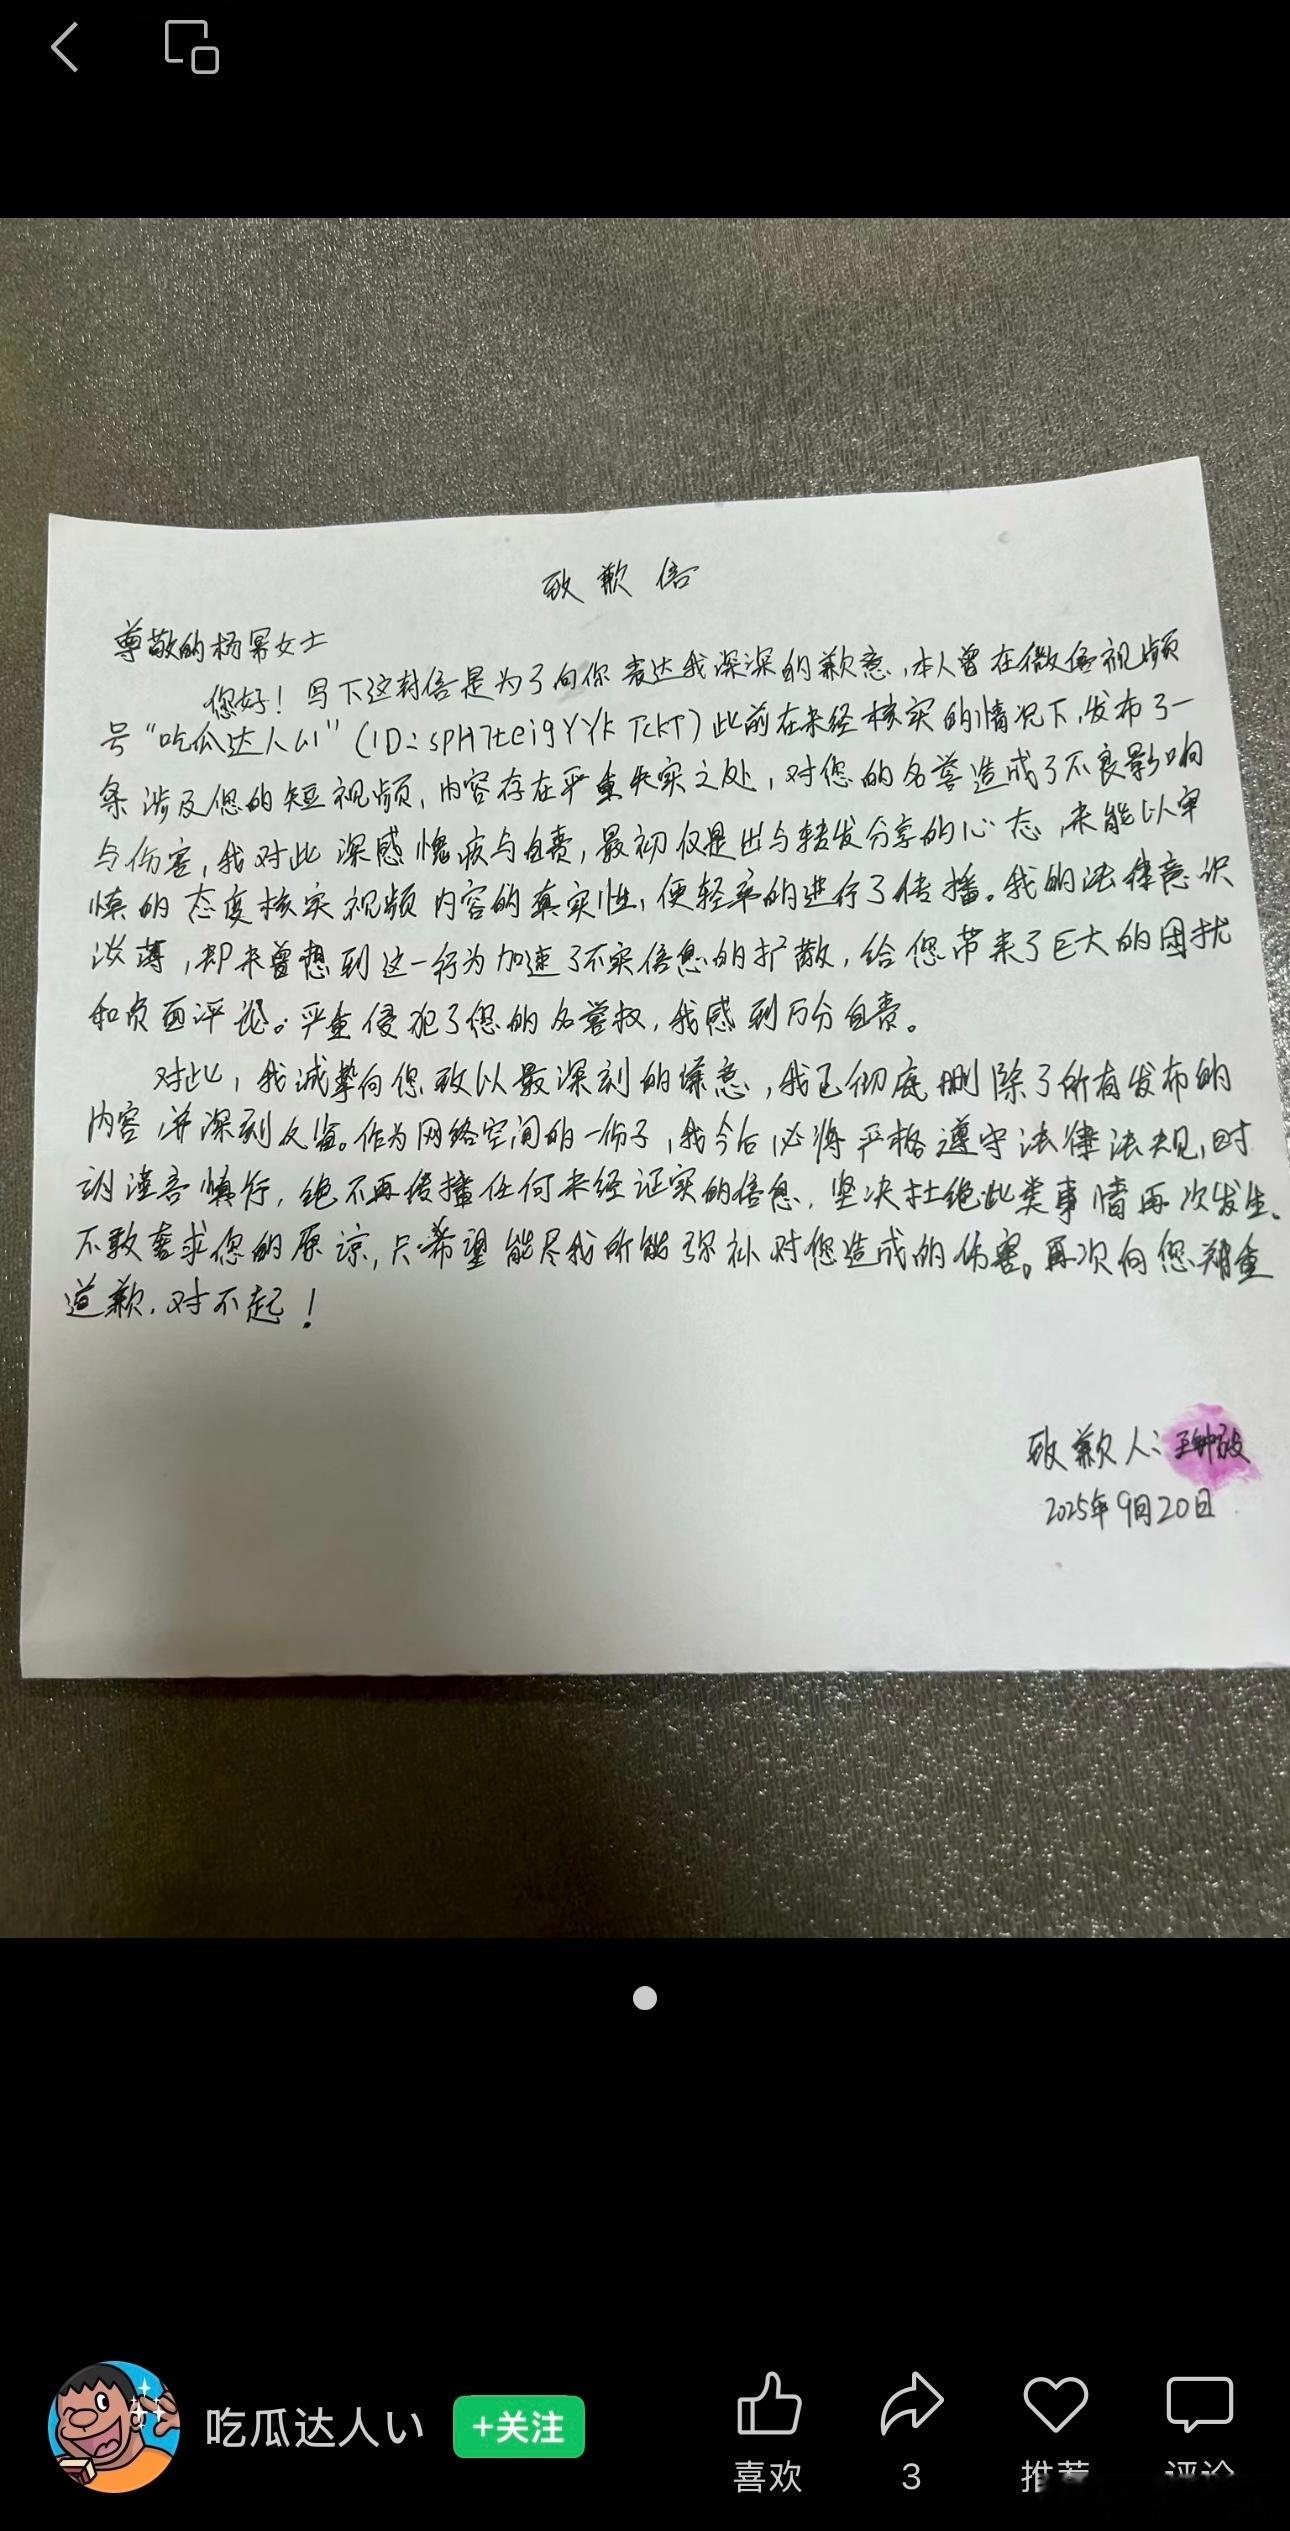 致歉信
尊敬的杨幂女士
您好！写下这封信是为了向你表达我深深的歉意，本人曾在微信视频
号“吃瓜达人い”（ID：sph7teig9YYkTckT）此前在未经核实的情况下，发布了一
条涉及您的短视频，内容存在严重失实之处，对您的名誉造成了不良影响
与伤害，我对此深感愧疚与自责，最初仅是出与转发分享的心态，未能以审
慎的态度核实视频内容的真实性，便轻率的进行了传播。我的法律意识
淡薄，却未曾想到这一行为加速了不实信息的扩散，给您带来了巨大的困扰
和负面评论。严重侵犯了您的名誉权，我感到万分自责。
对此，我诚挚向您致以最深刻的歉意，我已彻底删除了所有发布的
内容，并深刻反省。作为网络空间的一份子，我今后必将严格遵守法律法规，时
刻谨言慎行，绝不再传播任何未经证实的信息，坚决杜绝此类事情再次发生。
不敢奢求您的原谅，只希望能尽我所能弥补对您造成的伤害。再次向您郑重
道歉，对不起！
致歉人：
2025年9月20日
吃瓜达人い
+关注
喜欢
3
推荐
评论